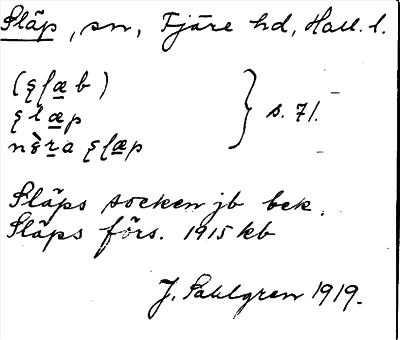 Släp, sn, Fjäre hd, Hall. l.
(ʂʃæb)
ʂlæp } s. 71.
nɛ̀ra ʂʃæp
Släps socken jb bek.
Släps förs. 1915 kb
J. Sahlgren 1919.